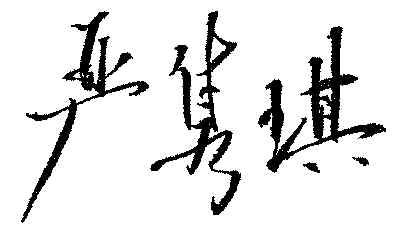 严隽琪